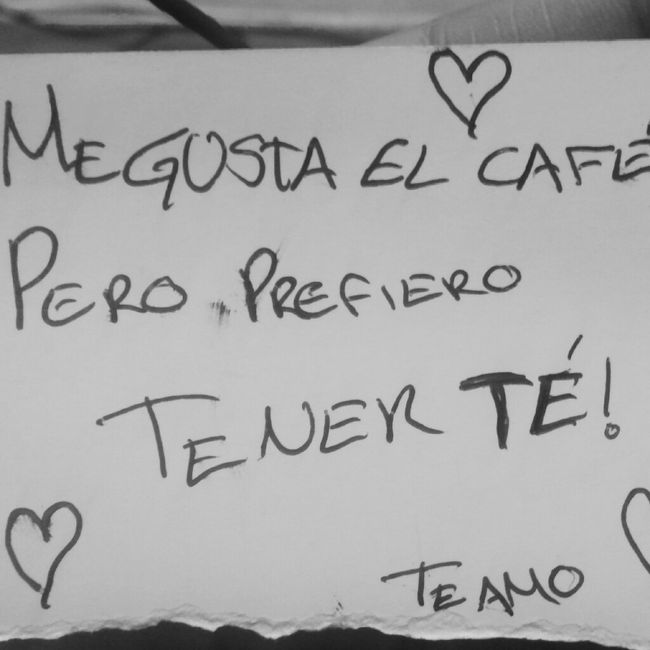 ME GUSTA EL CAFÉ
PERO PREFIERO
TENER TÉ!
TE AMO